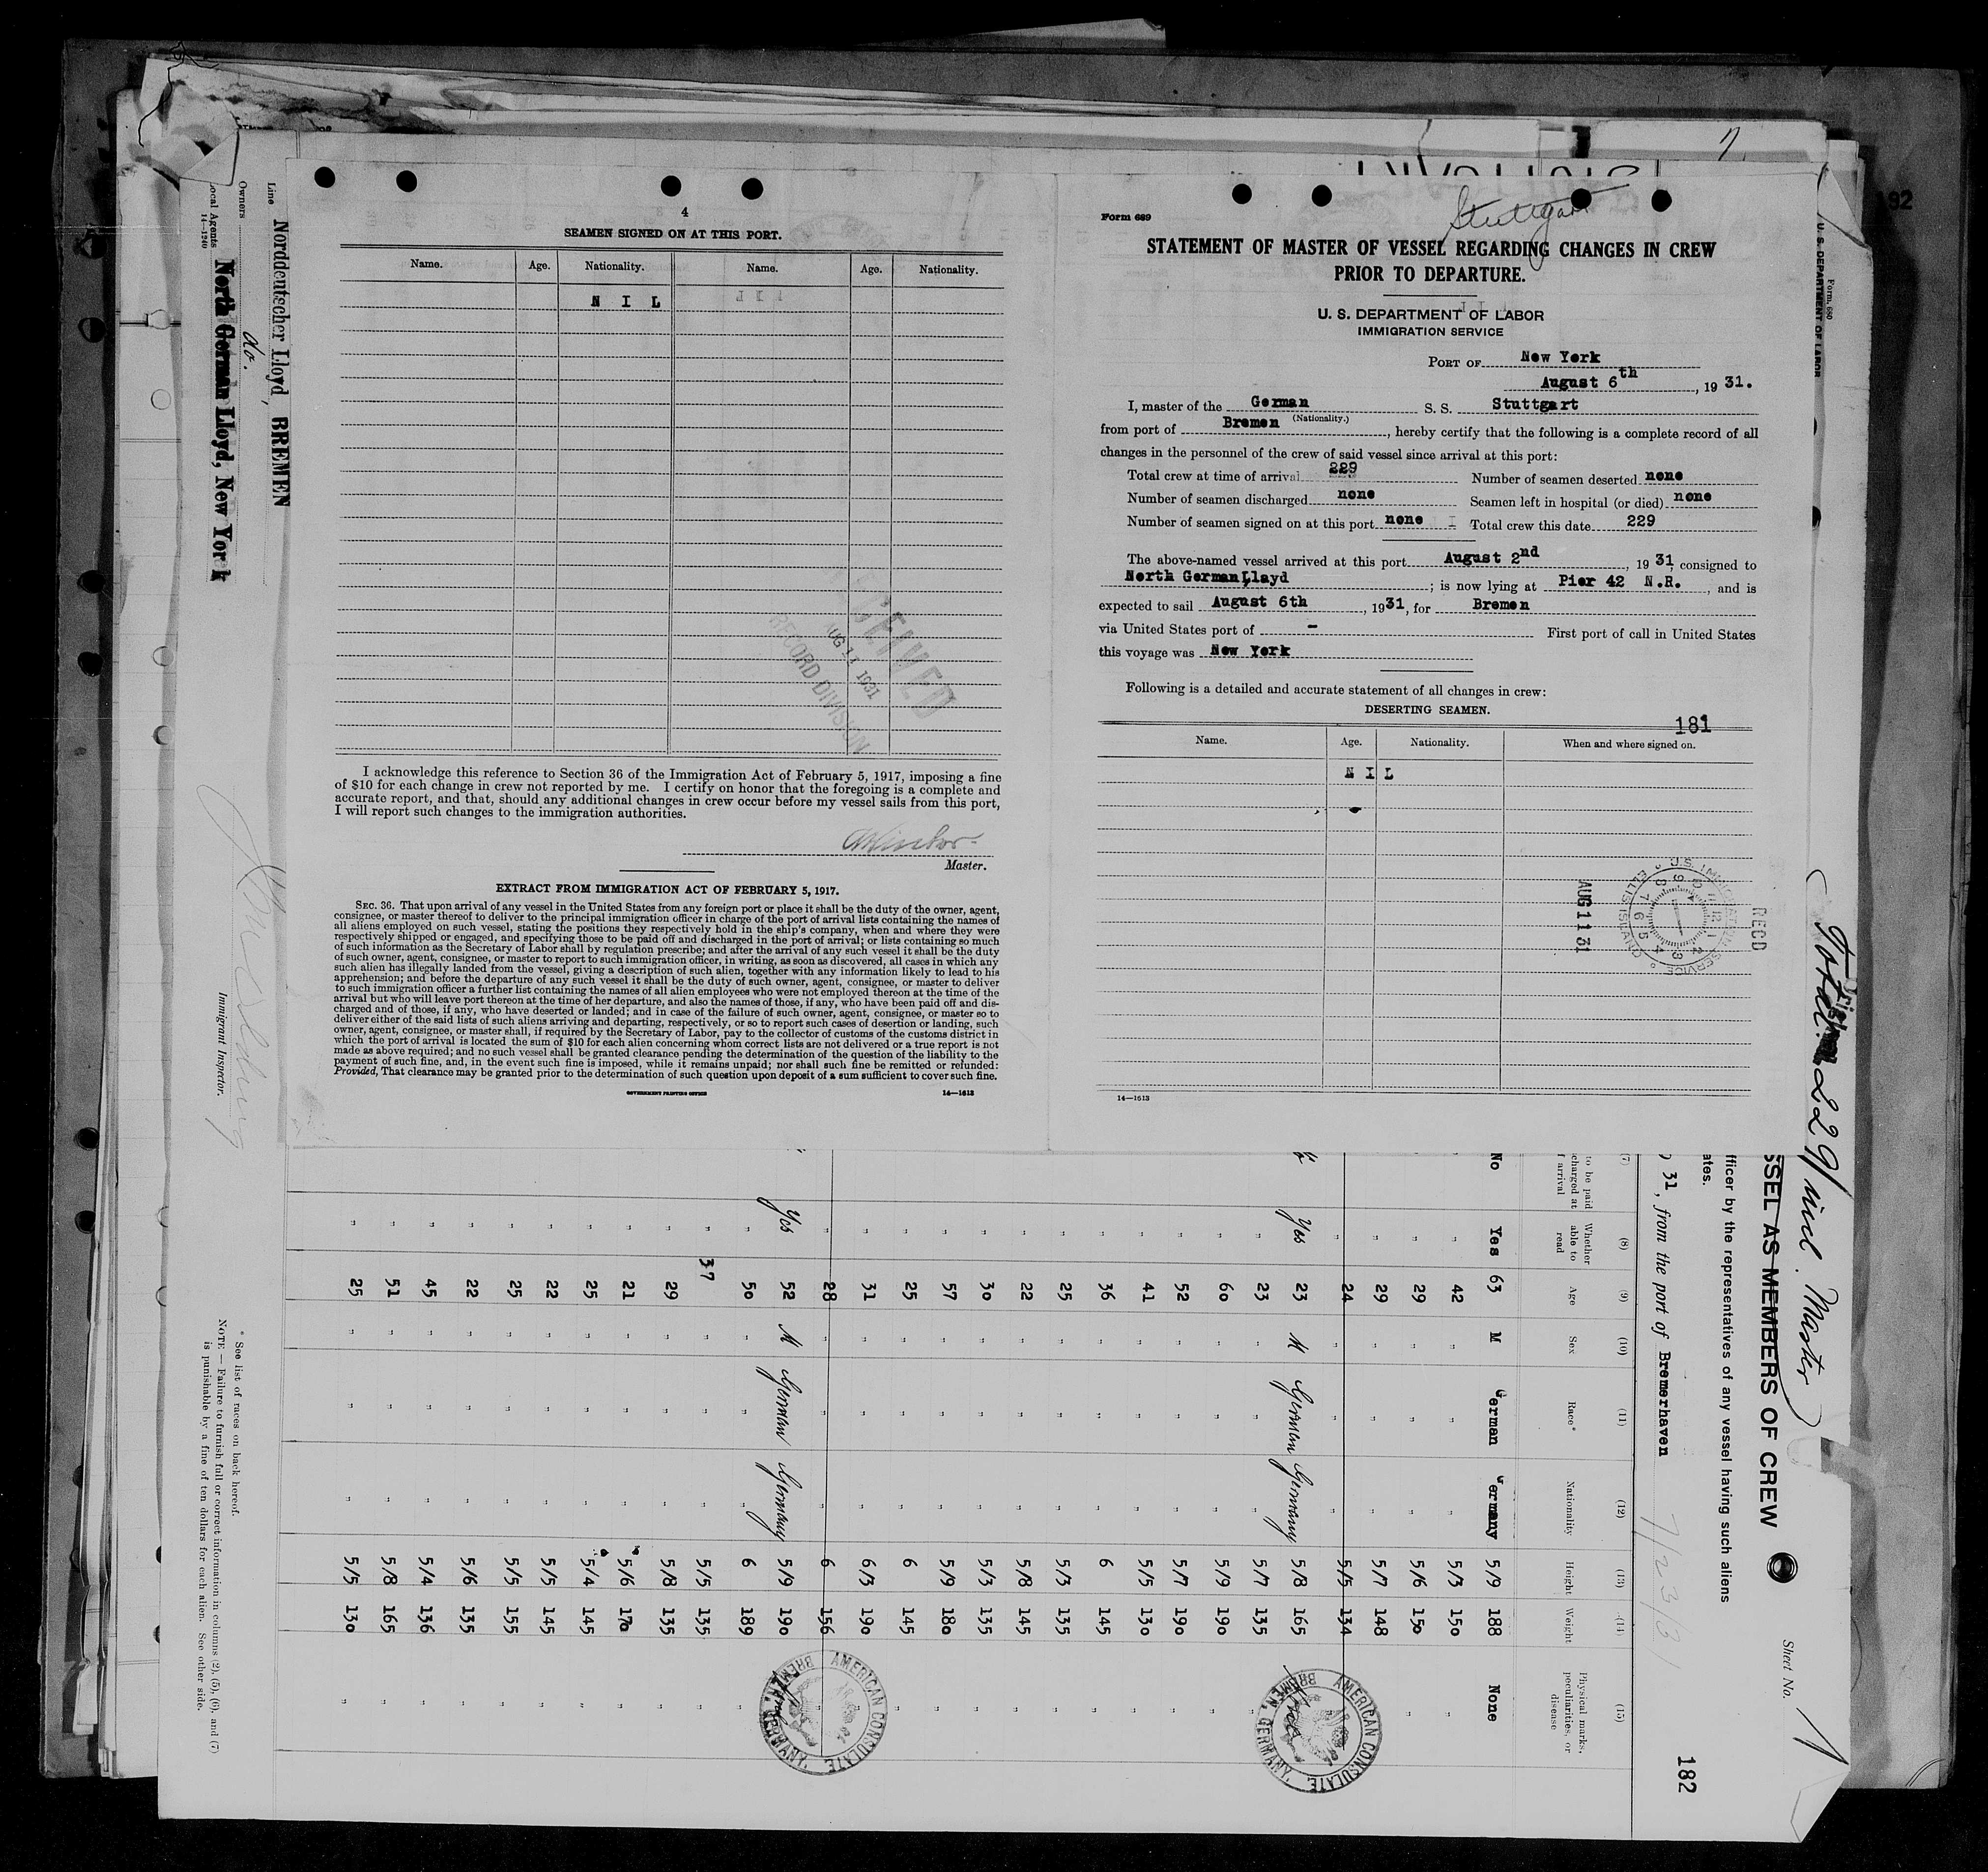 4
SEAMEN SIGNED ON AT THIS PORT.
Name. Age. Nationality. Name. Age. Nationality.
N I L
RECEIVED
AUG 11 1931
RECORD DIVISION
I acknowledge this reference to Section 36 of the Immigration Act of February 5, 1917, imposing a fine
of $10 for each change in crew not reported by me. I certify on honor that the foregoing is a complete and
accurate report, and that, should any additional changes in crew occur before my vessel sails from this port,
I will report such changes to the immigration authorities.
Master.
EXTRACT FROM IMMIGRATION ACT OF FEBRUARY 5, 1917.
SEC. 36. That upon arrival of any vessel in the United States from any foreign port or place it shall be the duty of the owner, agent,
consignee, or master thereof to deliver to the principal immigration officer in charge of the port of arrival lists containing the names of
all aliens employed on such vessel, stating the positions they respectively hold in the ship's company, when and where they were
respectively shipped or engaged, and specifying those to be paid off and discharged in the port of arrival; or lists containing so much
of such information as the Secretary of Labor shall by regulation prescribe; and after the arrival of any such vessel it shall be the duty
of such owner, agent, consignee, or master to report to such immigration officer, in writing, as soon as discovered, all cases in which any
such alien has illegally landed from the vessel, giving a description of such alien, together with any information likely to lead to his
apprehension; and before the departure of any such vessel it shall be the duty of such owner, agent, consignee, or master to deliver
to such immigration officer a further list containing the names of all alien employees who were not employed thereon at the time of the
arrival but who will leave port thereon at the time of her departure, and also the names of those, if any, who have been paid off and dis-
charged and of those, if any, who have deserted or landed; and in case of the failure of such owner, agent, consignee, or master so to
deliver either of the said lists of such aliens arriving and departing, respectively, or so to report such cases of desertion or landing, such
owner, agent, consignee, or master shall, if required by the Secretary of Labor, pay to the collector of customs of the customs district in
which the port of arrival is located the sum of $10 for each alien concerning whom correct lists are not delivered or a true report is not
made as above required; and no such vessel shall be granted clearance pending the determination of the question of the liability to the
payment of such fine, and, in the event such fine is imposed, while it remains unpaid; nor shall such fine be remitted or refunded:
Provided, That clearance may be granted prior to the determination of such question upon deposit of a sum sufficient to cover such fine.
GOVERNMENT PRINTING OFFICE 14—1613
Form 689
Stuttgart
STATEMENT OF MASTER OF VESSEL REGARDING CHANGES IN CREW
PRIOR TO DEPARTURE.
U. S. DEPARTMENT OF LABOR
IMMIGRATION SERVICE
PORT OF New York
August 6th, 1931.
I, master of the German S. S. Stuttgart
(Nationality.)
from port of Bremen, hereby certify that the following is a complete record of all
changes in the personnel of the crew of said vessel since arrival at this port:
Total crew at time of arrival 229 Number of seamen deserted none
Number of seamen discharged none Seamen left in hospital (or died) none
Number of seamen signed on at this port none Total crew this date 229
The above-named vessel arrived at this port August 2nd, 1931, consigned to
North German Llayd; is now lying at Pier 42 N.R., and is
expected to sail August 6th, 1931, for Bremen
via United States port of - First port of call in United States
this voyage was New York
Following is a detailed and accurate statement of all changes in crew:
DESERTING SEAMEN.
181
Name. Age. Nationality. When and where signed on.
N I L
U.S. IMMIGRATION SERVICE ELLIS ISLAND
RECD
AUG 11 31
14—1613
Line Norddeutscher Lloyd, BREMEN
Owners do.
Local Agents North German Lloyd, New York
14—1240
Immigrant Inspector.
Form 680
U. S. DEPARTMENT OF LABOR
Total: 229 incl. Master
Sheet No. 1
182
SSEL AS MEMBERS OF CREW
fficer by the representatives of any vessel having such aliens
ates.
31, from the port of Bremerhaven 7/23/31
(7) (8) (9) (10) (11) (12) (13) (14) (15)
to be paid
charged at
f arrival
Whether
able to
read
Age Sex Race* Nationality Height Weight
Physical marks,
peculiarities, or
disease
No Yes 63 M German Germany 5/9 188 None
" 42 " " " 5/3 150 "
" 29 " " " 5/6 150 "
" 29 " " " 5/7 148 "
" 24 " " " 5/5 134
Yes 23 M German Germany 5/8 165
" 23 " " " 5/7 135 "
" 60 " " " 5/9 190 "
" 52 " " " 5/7 190 "
" 41 " " " 5/5 130 "
" 36 " " " 6 145 "
" 25 " " " 5/3 135 "
" 22 " " " 5/8 145 "
" 30 " " " 5/3 135 "
" 57 " " " 5/9 180 "
" 25 " " " 6 145 "
" 31 " " " 6/3 190
" 28 " " " 6 156 "
Yes 52 M German Germany 5/9 190
" 50 " " " 6 189 "
" 37 " " " 5/5 135 "
" 29 " " " 5/8 135 "
" 21 " " " 5/6 170 "
" 25 " " " 5/4 145 "
" 22 " " " 5/5 145 "
" 25 " " " 5/5 155 "
" 22 " " " 5/6 135 "
" 45 " " " 5/4 136 "
" 51 " " " 5/8 165 "
" 25 " " " 5/5 130 "
AMERICAN CONSULATE BREMEN, GERMANY.
AMERICAN CONSULATE BREMEN, GERMANY.
* See list of races on back hereof.
NOTE — Failure to furnish full or correct information in columns (2), (5), (6), and (7)
is punishable by a fine of ten dollars for each alien. See other side.
92